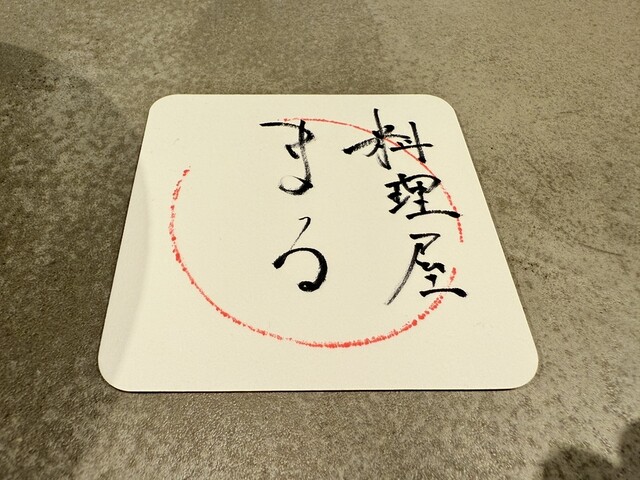 料理屋
まる